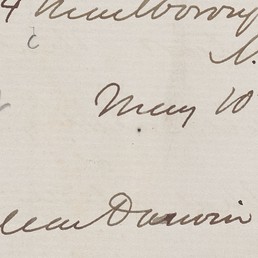 4 Marlborough
May 10
Dear Darwin